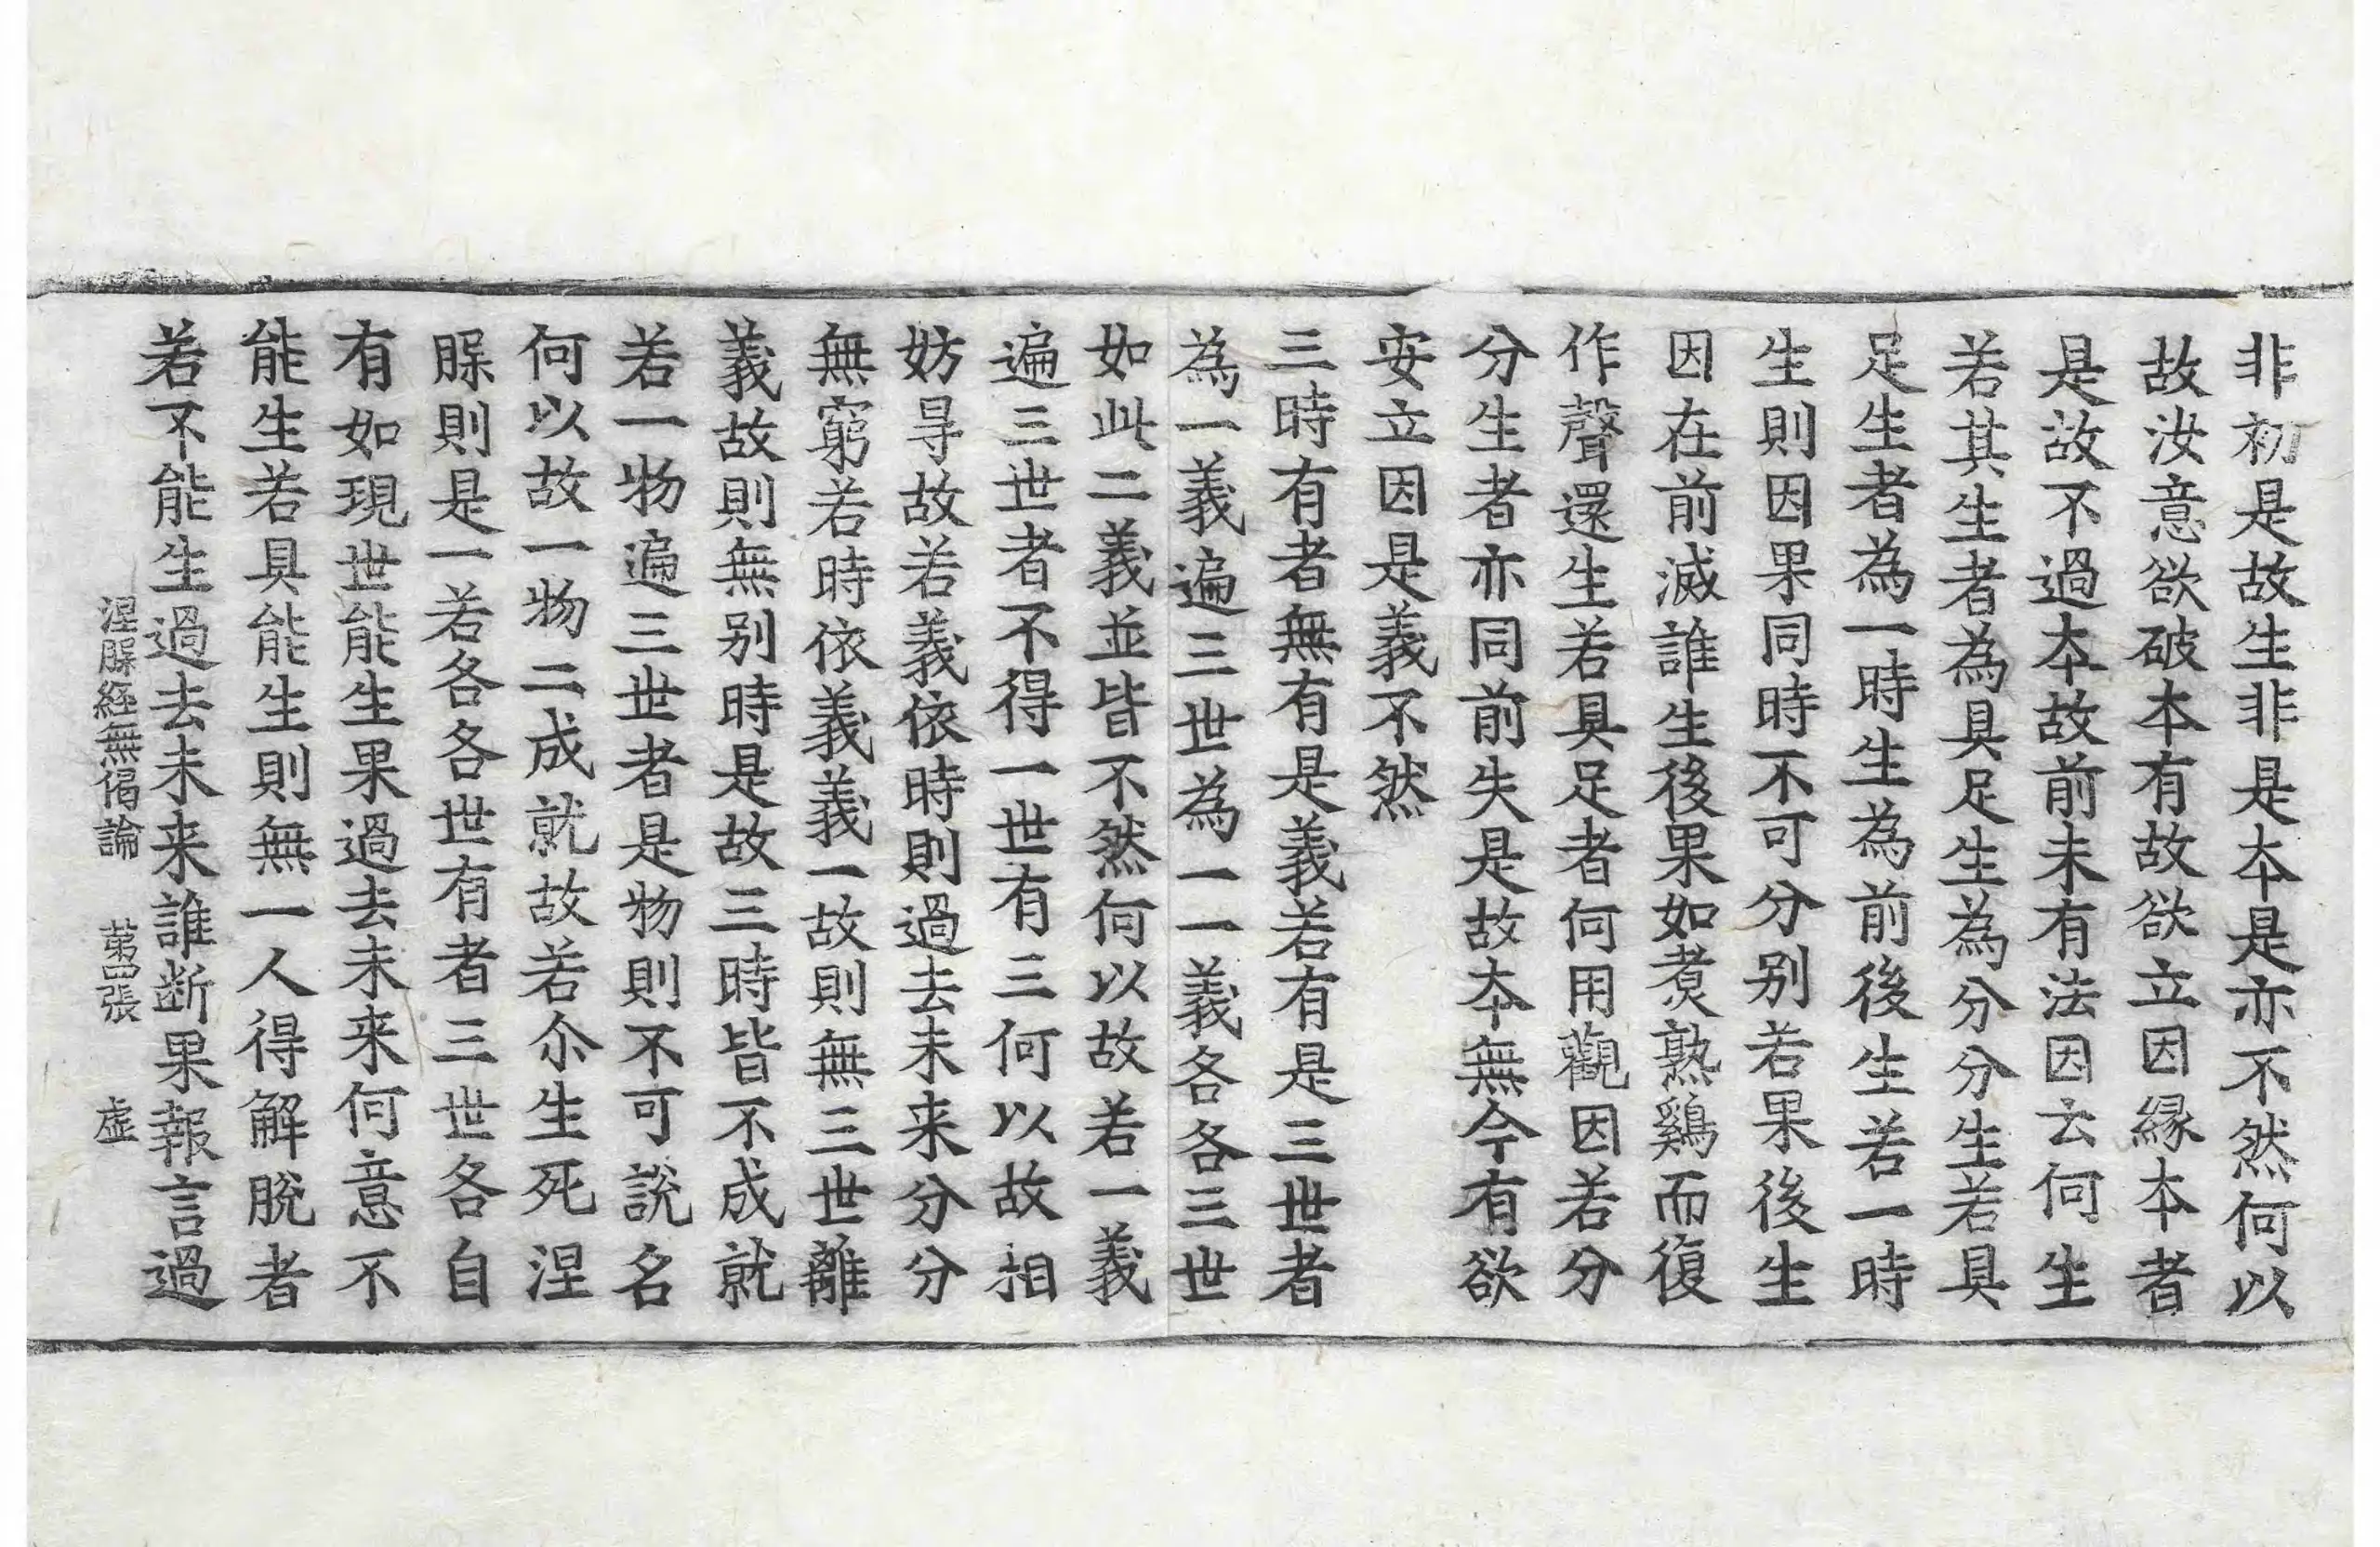 非初是故生非是本是亦不然何以
故汝意欲破本有故欲立因縁本者
是故不過本故前未有法因云何生
若其生者為具足生為分分生若具
足生者為一時生為前後生若一時
生則因果同時不可分别若果後生
因在前滅誰生後果如煑熟鷄而復
作聲還生若具足者何用觀因若分
分生者亦同前失是故本無今有欲
安立因是義不然
三時有者無有是義若有是三世者
為一義遍三世為一一義各各三世
如此二義並皆不然何以故若一義
遍三世者不得一世有三何以故相
妨㝵故若義依時則過去未来分分
無窮若時依義義一故則無三世離
義故則無别時是故三時皆不成就
若一物遍三世者是物則不可說名
何以故一物二成就故若尒生死涅
槃則是一若各各世有者三世各自
有如現世能生果過去未来何意不
能生若具能生則無一人得解脫者
若不能生過去未来誰断果報言過
涅槃經無偈論　第四張　虛